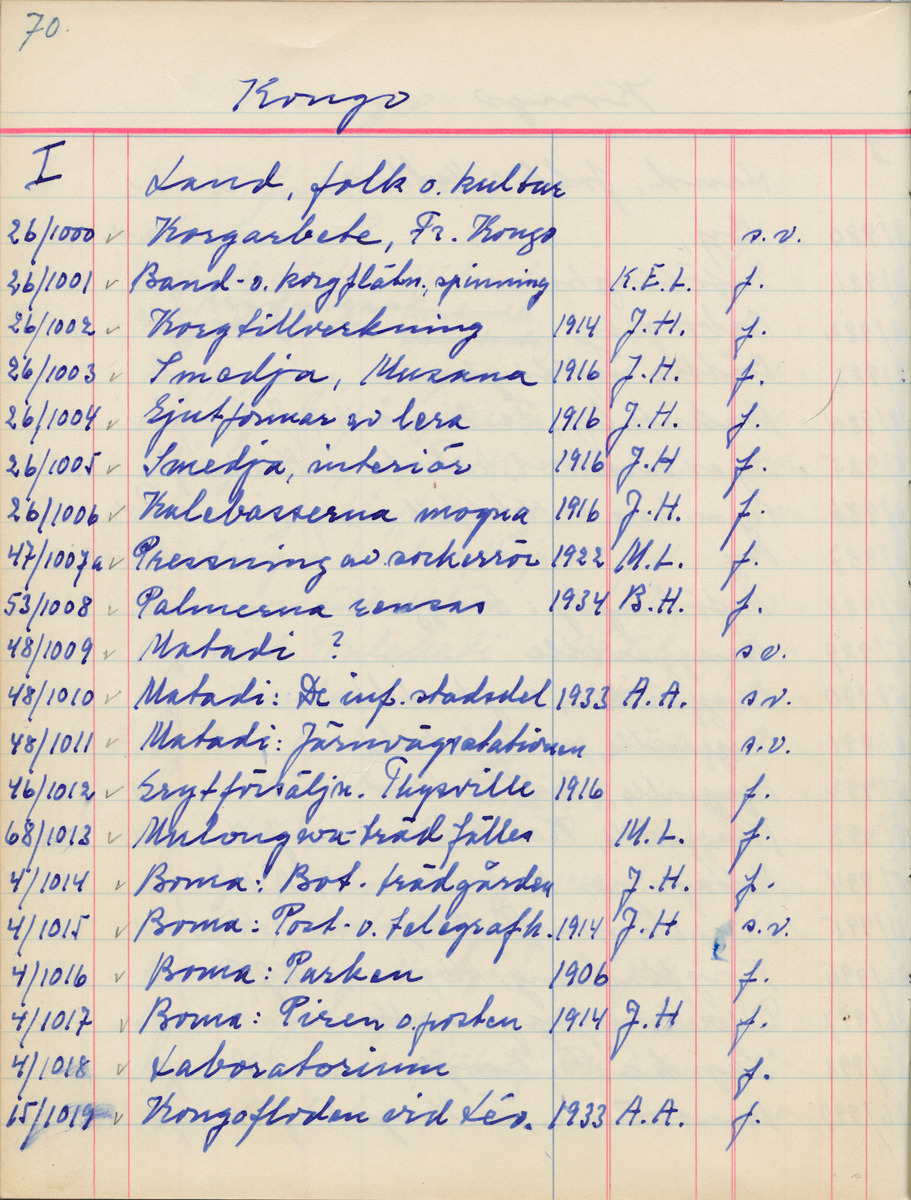 70.
Kongo
I Land, folk o. kultur
26/1000 ✓ Korgarbete, Fr. Kongo s.v.
26/1001 ✓ Band- o. korgflätn., spinning K.E.L. f.
26/1002 ✓ Korgtillverkning 1914 J.H. f.
26/1003 ✓ Smedja, Mukana 1916 J.H. f.
26/1004 ✓ Gjutformar av lera 1916 J.H. f.
26/1005 ✓ Smedja, interiör 1916 J.H f.
26/1006 ✓ Kalebasserna mogna 1916 J.H. f.
47/1007a ✓ Pressning av sockerrör 1922 M.L. f.
53/1008 ✓ Palmerna rensas 1934 B.H. f.
48/1009 ✓ Matadi ? s v.
48/1010 ✓ Matadi: De inf. stadsdel 1933 A.A. s v.
48/1011 ✓ Matadi: Järnvägsstationen s.v.
46/1012 ✓ Grytförsäljn. Thysville 1916 f.
68/1013 ✓ Mulongwa-träd fälles M.L. f.
4/1014 ✓ Boma: Bot. trädgården J.H. f.
4/1015 ✓ Boma: Post- o. telegrafk. 1914 J.H s.v.
4/1016 ✓ Boma: Parken 1906 f.
4/1017 ✓ Boma: Piren o. posten 1914 J.H f.
4/1018 ✓ Laboratorium f.
15/1019 ✓ Kongofloden vid Léo. 1933 A.A. f.